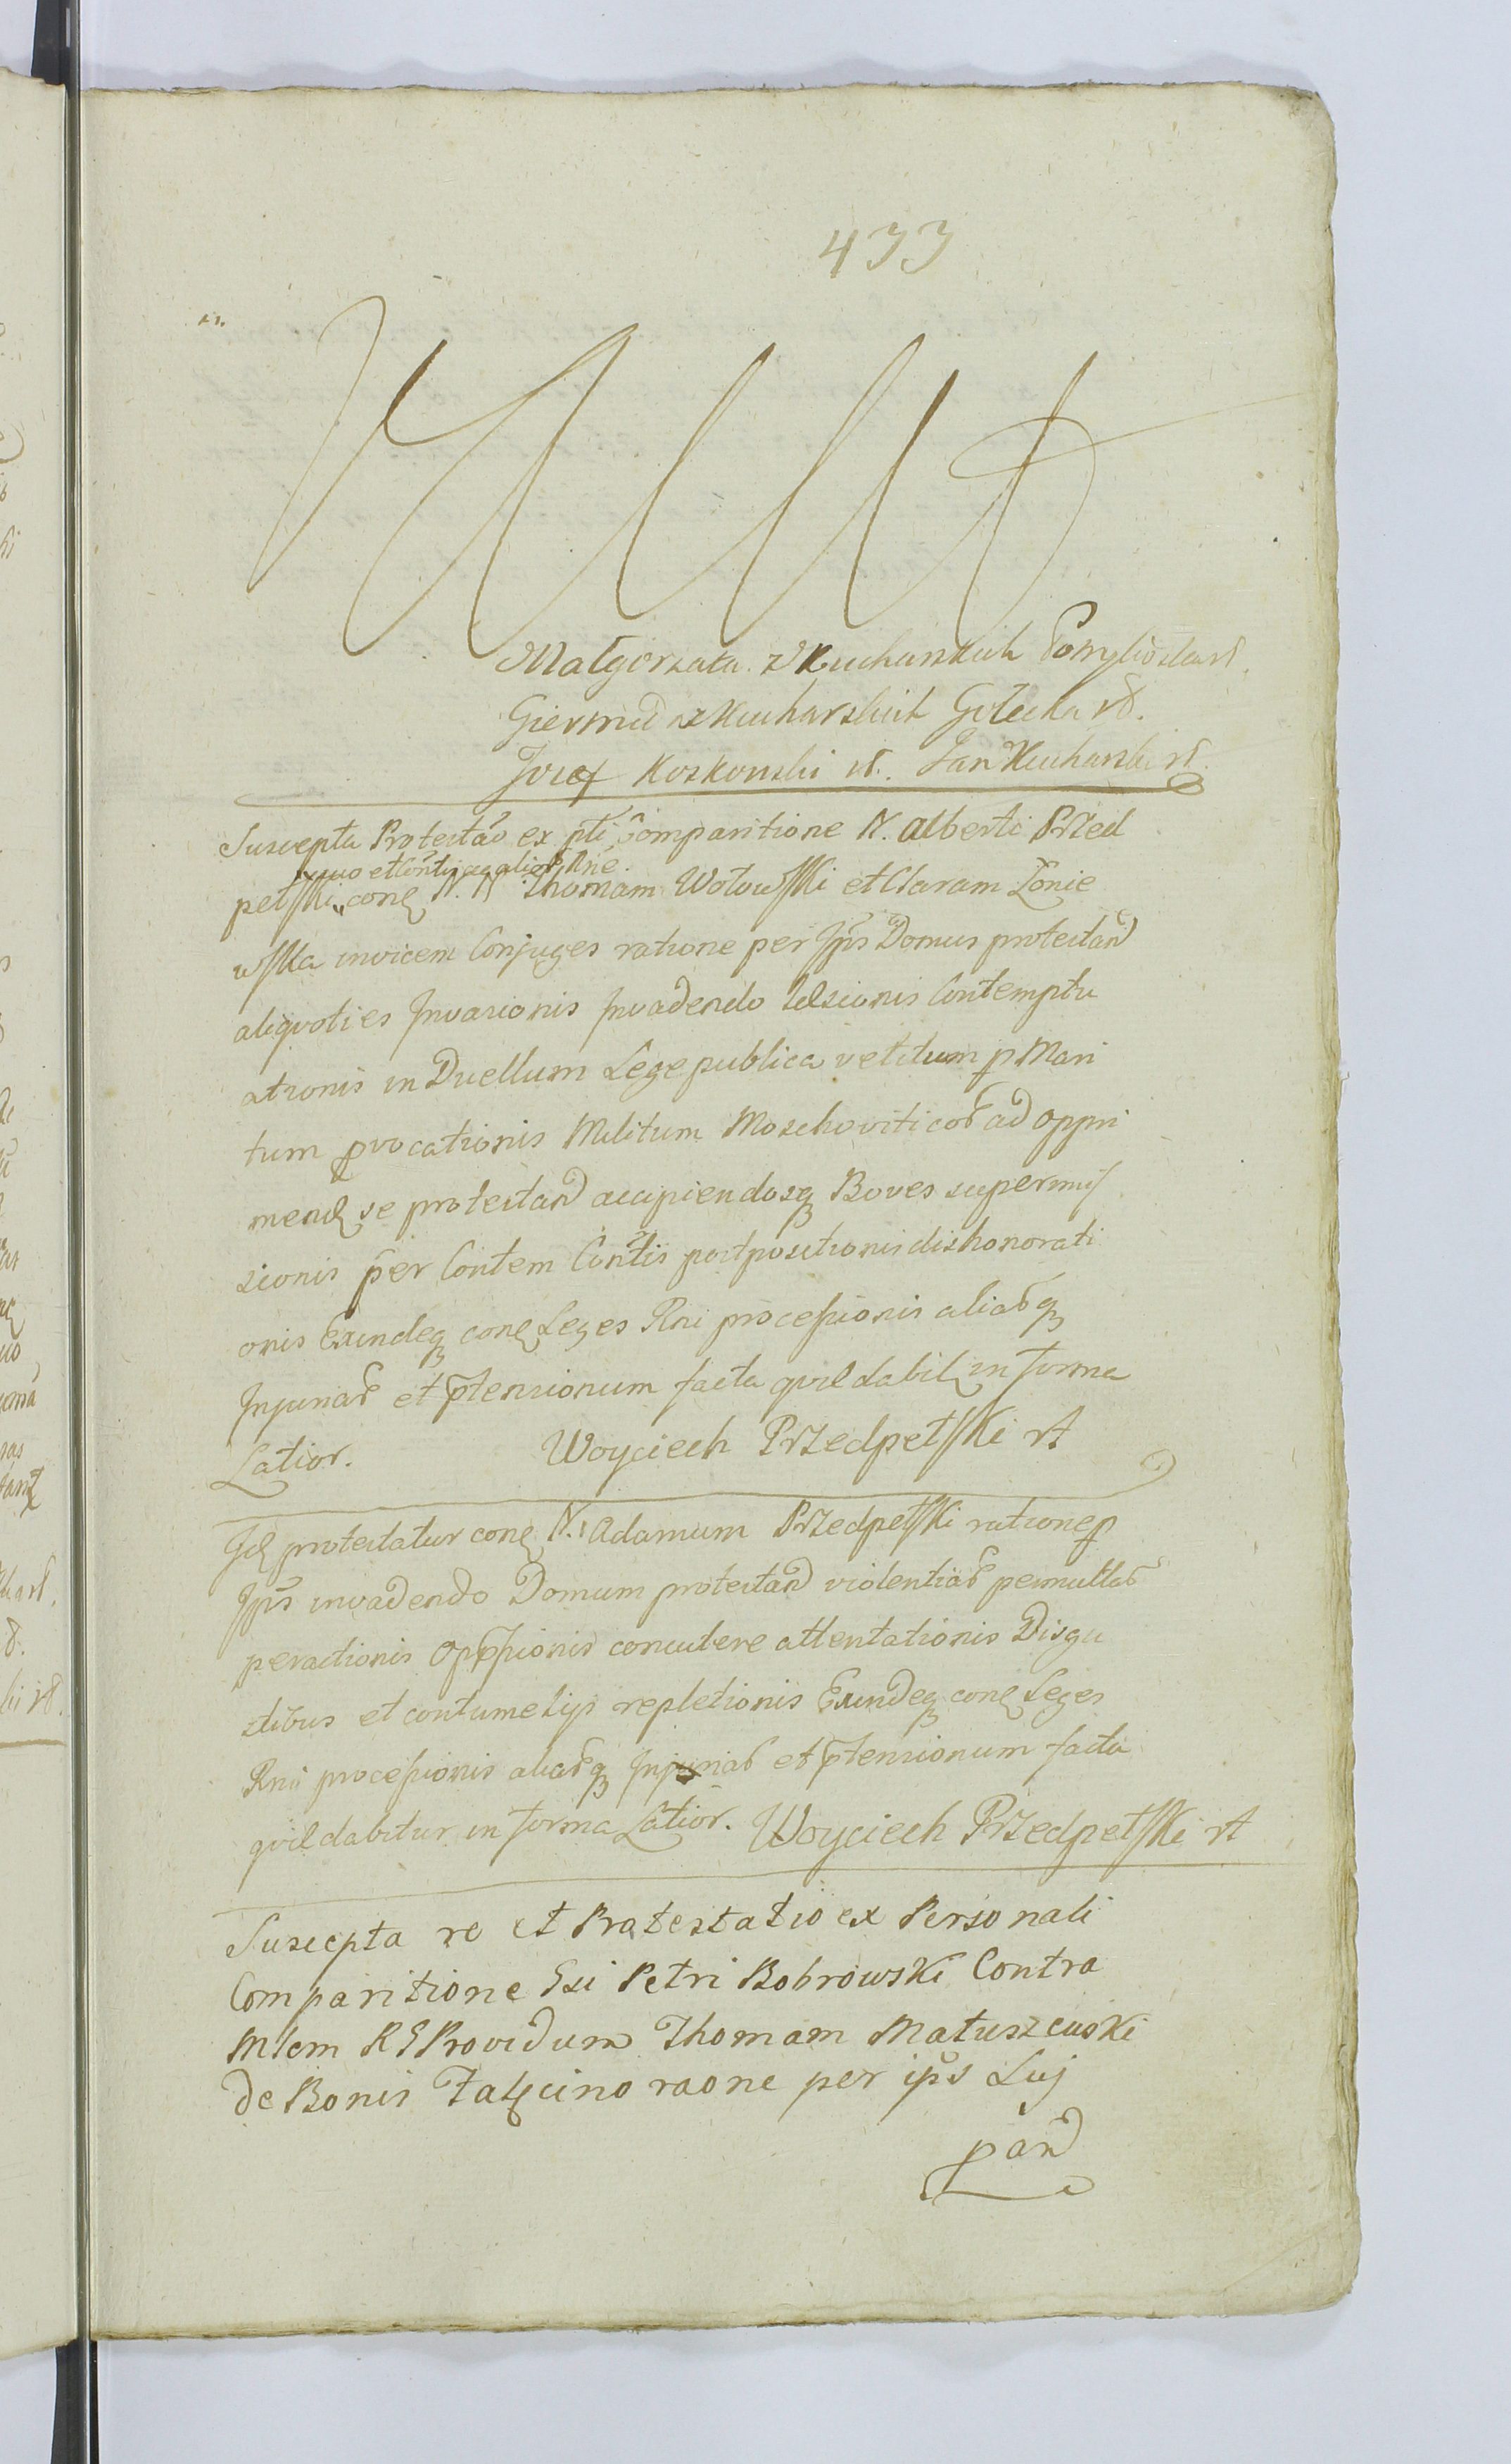 433
Małgorzata z Kucharskich
Giermud z Kucharskich Golecka rß.
Jozef Koskowski rß. Jan Kucharski rß.
Suscepta Protestao ex pti Comparitione N. Alberti Przed
suo et
petski conq N. N. Thomam Wołowski et Claram Zónie
wska invicem Conjuges ratione per Jpis Domus protestan
aliqvoties Invasionis Invadendo Contemptu
ationis in Duellum Lege publica vetitum p Mari
tum pvocationis Militum Moschoviticor ad oppri
mend se protestan accipiendosq Boves supermis
sionis per Contem Contis postpositionis dishonorati
onis Exindeq conq Leges Rni processionis aliarq
Injuriar et ptensionum facta qvæ dabit in forma
Latior. Woyciech Przedpetski rt
Id protestatur conq N. Adamum Przedpetski ratione p
Jpis invadendo Domum protestan violentiar permultar
peractionis Oppssionis concutere attentationis Disgu
stibus et contumelijs repletionis Exindeq conq Leges
Rni processionis aliarq Injuriar et ptensionum facta
qvæ dabitur in forma Latior. Woyciech Przedpetski rt
Suscepta re et Protestatio ex Personali
Comparitione Gsi Petri Bobrowski Contra
Mlem R G Providum Thomam Matuszewski
de Bonis raone per ips Luj
pan